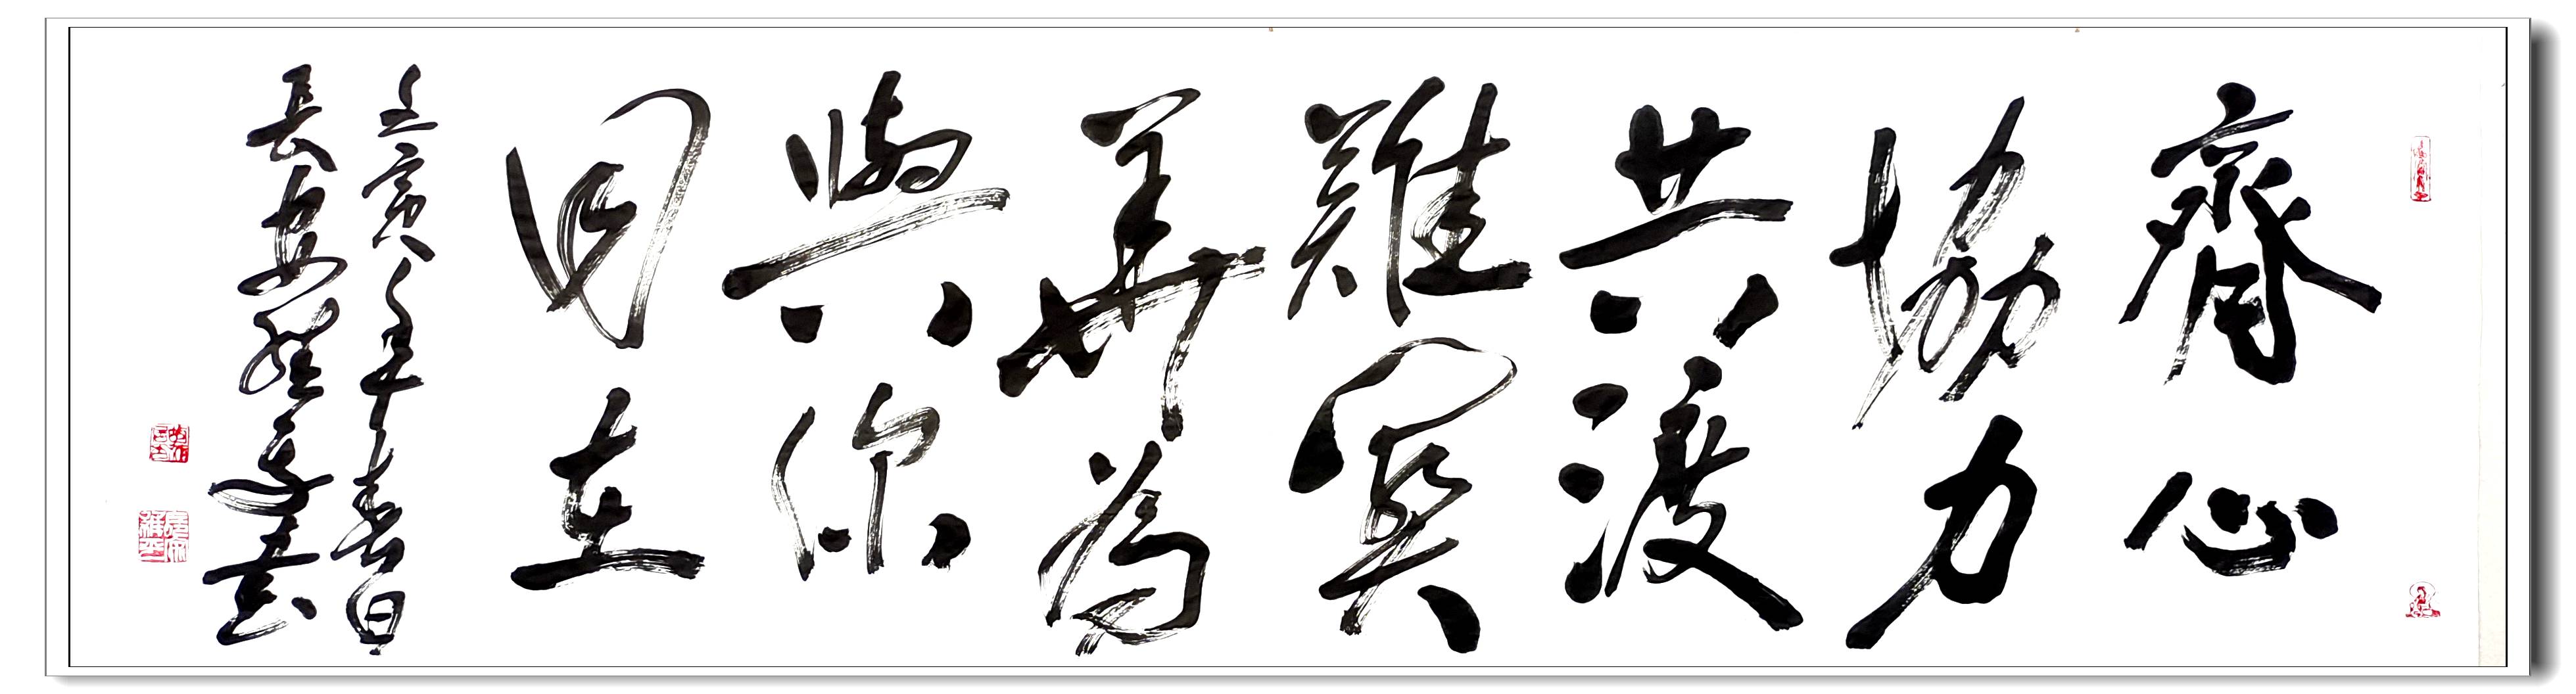 齊心
協力
共渡
難寞
華為
與你
同在
壬寅年春日
長安維平書